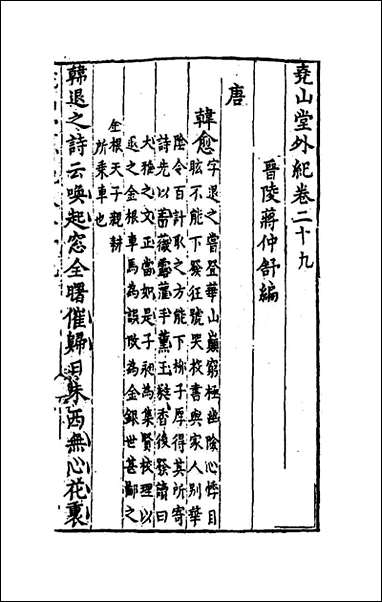 堯山堂外紀卷二十九
晉陵蔣仲舒編
唐
韓愈
字退之嘗登華山巔窮極幽險心悸目
眩不能下發狂號哭投書與家人別華
陰令百計取之方能下柳子厚得其所寄
詩先以薔薇露盥手薰玉蕤香後發讀曰
大雅之文正當如是子昶為集賢校理以
史之金根車為誤改為金銀世甚鄙之
金根天子親耕
所乘車也
韓退之詩云喚起窓全曙催歸日未西無心花裏